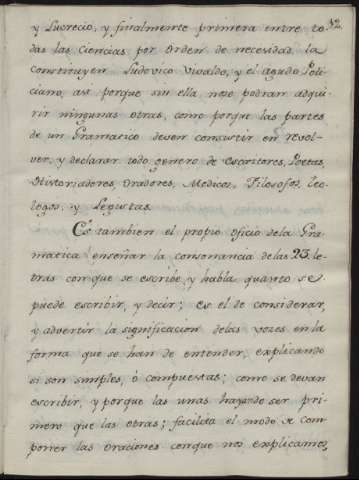 y Lucrecio, y finalmente primera entre to- 12.
das las Ciencias por orden de necesidad la
constituyen Ludovico Vivaldo, y el agudo Poli-
ciano, asi porque sin ella no se podran adqui-
rir ningunas otras, como porque las partes
de un Gramatico deven consistir en revol-
ver, y declarar todo genero de Escritores, Poetas,
Historiadores, Oradores, Medicos, Filosofos, Teo-
logos, y Legistas.
Es tambien el propio oficio dela Gra-
matica enseñar la consonancia delas 23. le-
tras con que se escribe, y habla quanto se
puede escribir, y decir; es el de considerar,
y advertir la significacion delas vozes en la
forma que se han de entender, explicando
si son simples, ò compuestas; como se devan
escribir, y porque las unas hayan de ser pri-
mero que las otras; facilita el modo de com-
poner las oraciones conque nos explicamos,